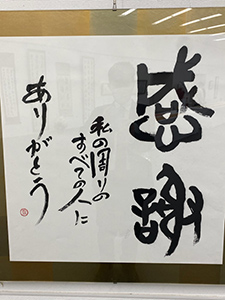 感謝
私の周りの
すべての人に
ありがとう